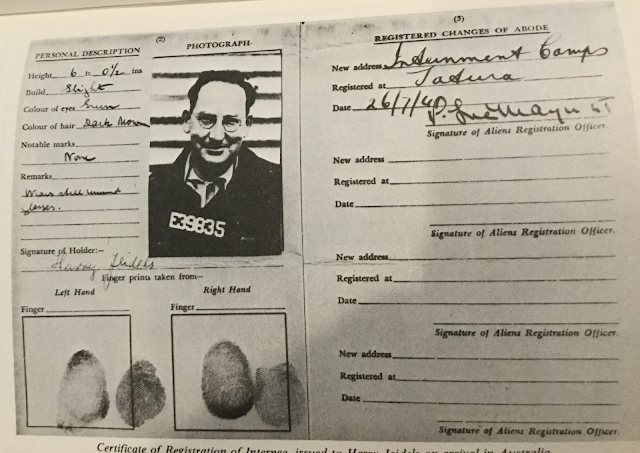 (2)
PERSONAL DESCRIPTION
Height 6 ft 0½ ins
Build Slight
Colour of eyes
Colour of hair Dark Brown
Notable marks
None
Remarks
Wears shell rimmed
glasses.
Signature of Holder:-
Harry
Finger prints taken from—
Left Hand Right Hand
Finger Finger
PHOTOGRAPH
E39835
(3)
REGISTERED CHANGES OF ABODE
New address Internment Camps
Registered at Tatura
Date 26/7/40
Signature of Aliens Registration Officer.
New address
Registered at
Date
Signature of Aliens Registration Officer.
New address
Registered at
Date
Signature of Aliens Registration Officer.
New address
Registered at
Date
Signature of Aliens Registration Officer.
Certificate of Registration of Internee, issued to Harry on arrival in Australia